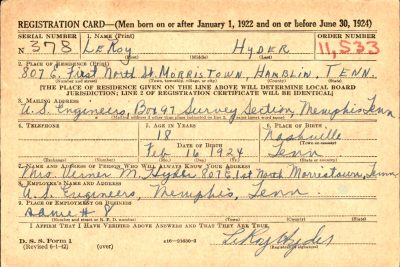 REGISTRATION CARD—(Men born on or after January 1, 1922 and on or before June 30, 1924)
SERIAL NUMBER 1. NAME (Print) ORDER NUMBER
N 378 LeRoy Hyder 11,533
(First) (Middle) (Last)
2. PLACE OF RESIDENCE (Print)
807 E. First North St. MORRISTOWN, HAMBLIN, TENN.
(Number and street) (Town, township, village, or city) (County) (State)
[THE PLACE OF RESIDENCE GIVEN ON THE LINE ABOVE WILL DETERMINE LOCAL BOARD
JURISDICTION; LINE 2 OF REGISTRATION CERTIFICATE WILL BE IDENTICAL]
3. MAILING ADDRESS
U.S. Engineers, Box 97 Survey Section, Memphis Tenn
[Mailing address if other than place indicated on line 2. If same insert word same]
4. TELEPHONE 5. AGE IN YEARS 6. PLACE OF BIRTH
18 Nashville
DATE OF BIRTH (Town or county)
Feb 16 1924 Tenn
(Exchange) (Number) (Mo.) (Day) (Yr.) (State or country)
7. NAME AND ADDRESS OF PERSON WHO WILL ALWAYS KNOW YOUR ADDRESS
Mrs. Verner M. Hyder 807 E. 1st North Morristown, Tenn.
8. EMPLOYER'S NAME AND ADDRESS
U.S. Engineers, Memphis, Tenn
9. PLACE OF EMPLOYMENT OR BUSINESS
Same # 8
(Number and street or R. F. D. number) (Town) (County) (State)
I AFFIRM THAT I HAVE VERIFIED ABOVE ANSWERS AND THAT THEY ARE TRUE.
D. S. S. Form 1
(Revised 6-1-42) (over)
LeRoy Hyder
(Registrant's signature)